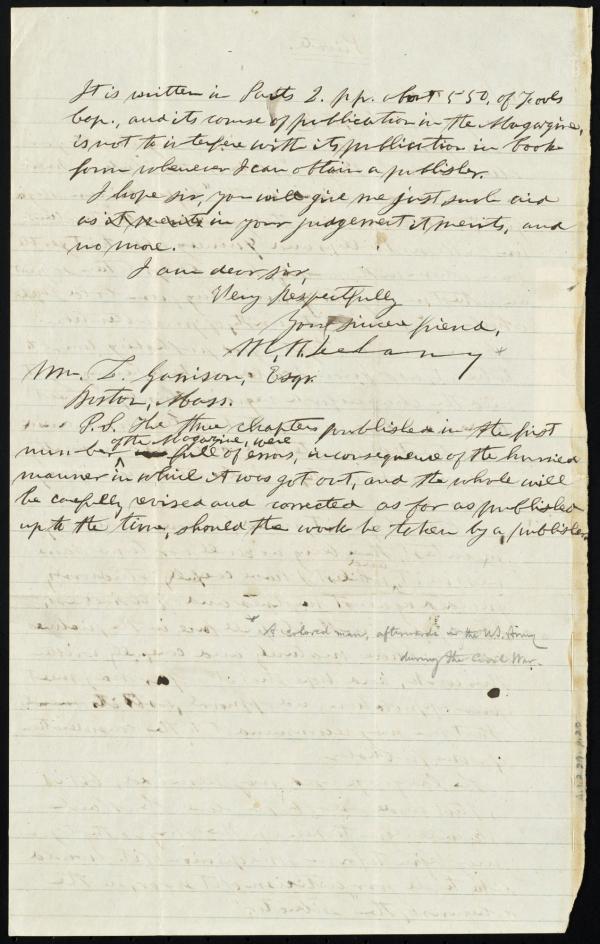 Private.
It is written in Parts 2. pp. about 550, of Fools
cap., and its course of publication in the Magazine,
is not to interfere with its publication in book
form whenever I can obtain a publisher.
I hope sir, you will give me just such aid
as it merits in your judgement it merits, and
no more.
I am dear sir,
Very Respectfully
Your sincere friend,
M. R. Delany *
Wm. L. Garrison, Esqr.
Boston, Mass.
P.S. The three chapters published in the first
number of the Magazine, were full of errors, in consequence of the hurried
manner in which it was got out, and the whole will
be carefully revised and corrected as far as published
up to the time, should the work be taken by a publisher.
* A colored man, afterwards in the U.S. Army
during the Civil War.